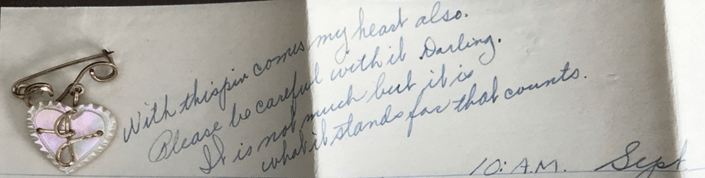 With this pin comes my heart also.
Please be careful with it Darling.
It is not much but it is
what it stands for that counts.
10: A.M. Sept